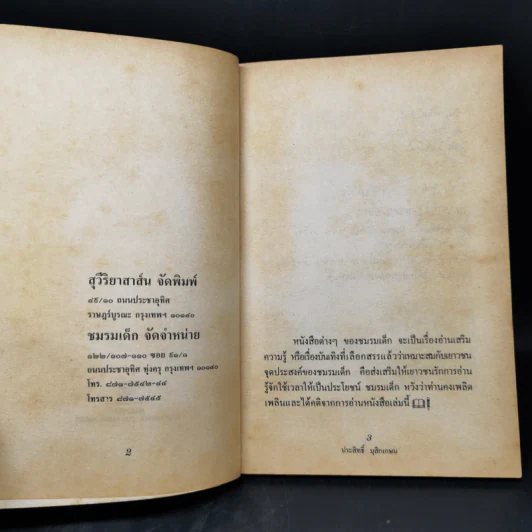 สุวีริยาสาส์น จัดพิมพ์
๔๕/๑๐ ถนนประชาอุทิศ
ราษฎร์บูรณะ กรุงเทพฯ ๑๐๑๔๐
ชมรมเด็ก จัดจำหน่าย
๑๒๒/๑๐๘-๑๑๐ ซอย ๙๑/๑
ถนนประชาอุทิศ ทุ่งครุ กรุงเทพฯ ๑๐๑๔๐
โทร. ๘๗๑-๗๕๔๒-๔๔
โทรสาร ๘๗๑-๗๕๔๕
2
หนังสือต่างๆ ของชมรมเด็ก จะเป็นเรื่องอ่านเสริม
ความรู้ หรือเรื่องบันเทิงที่เลือกสรรแล้วว่าเหมาะสมกับเยาวชน
จุดประสงค์ของชมรมเด็ก คือส่งเสริมให้เยาวชนรักการอ่าน
รู้จักใช้เวลาให้เป็นประโยชน์ ชมรมเด็ก หวังว่าท่านคงเพลิด
เพลินและได้คติจากการอ่านหนังสือเล่มนี้
3
ประสิทธิ์ มุสิกเกษม